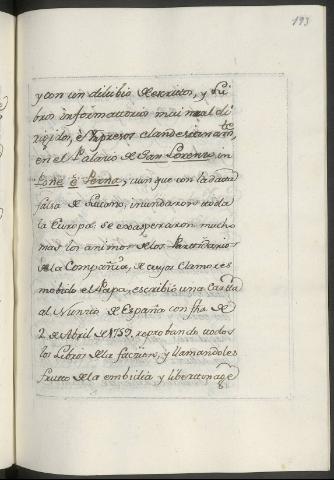 193
y con un dilubio de escritos, y Li
bros informatorios mui mal di
rigidos, è Ympresos clandestinamte
en el Palacio de San Lorenzo in
y aun que con la data
falsa de Lugano, inundaron toda
la Europa, se exasperaron mucho
mas los animos de los Partidarios
de la Compañia, de cuyos Clamores
mobido el Papa, escribió una Carta
al Nuncio de España con fha. de
2 de Abril de 1759, reprobando todos
los Libros de la faccion, y llamandoles
frutto de la embidia, y libertinage